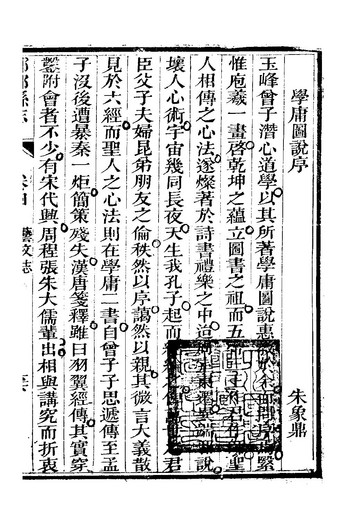 學庸圖說序
朱象鼎
玉峰曾子潛心道學以其所著學庸圖說惠
惟庖羲一畫啓乾坤之蘊立圖書之祖而五
人相傳之心法遂燦著於詩書禮樂之中迨
壞人心術宇宙幾同長夜天生我孔子起而
臣父子夫婦昆弟朋友之倫秩然以序藹然以親其微言大義散
見於六經而聖人之心法則在學庸二書自曾子子思遞傳至孟
子沒後遭暴秦一炬簡策殘失漢唐箋釋雖曰羽翼經傳其實穿
鑿附會者不少有宋代興周程張朱大儒輩出相與講究而折衷
藝文志